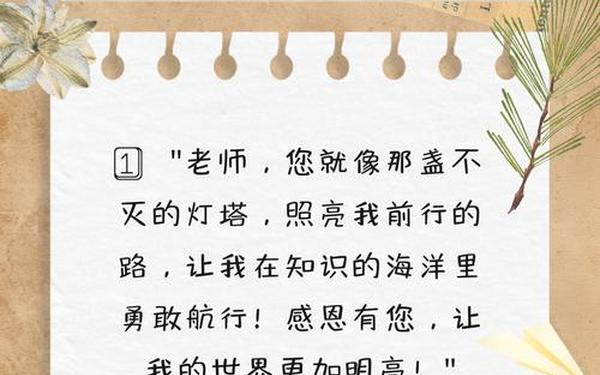 1 "老师，您就像那盏不
灭的灯塔，照亮我前行的
路，让我在知识的海洋里
勇敢航行！感恩有您，让
我的世界更加明亮！"